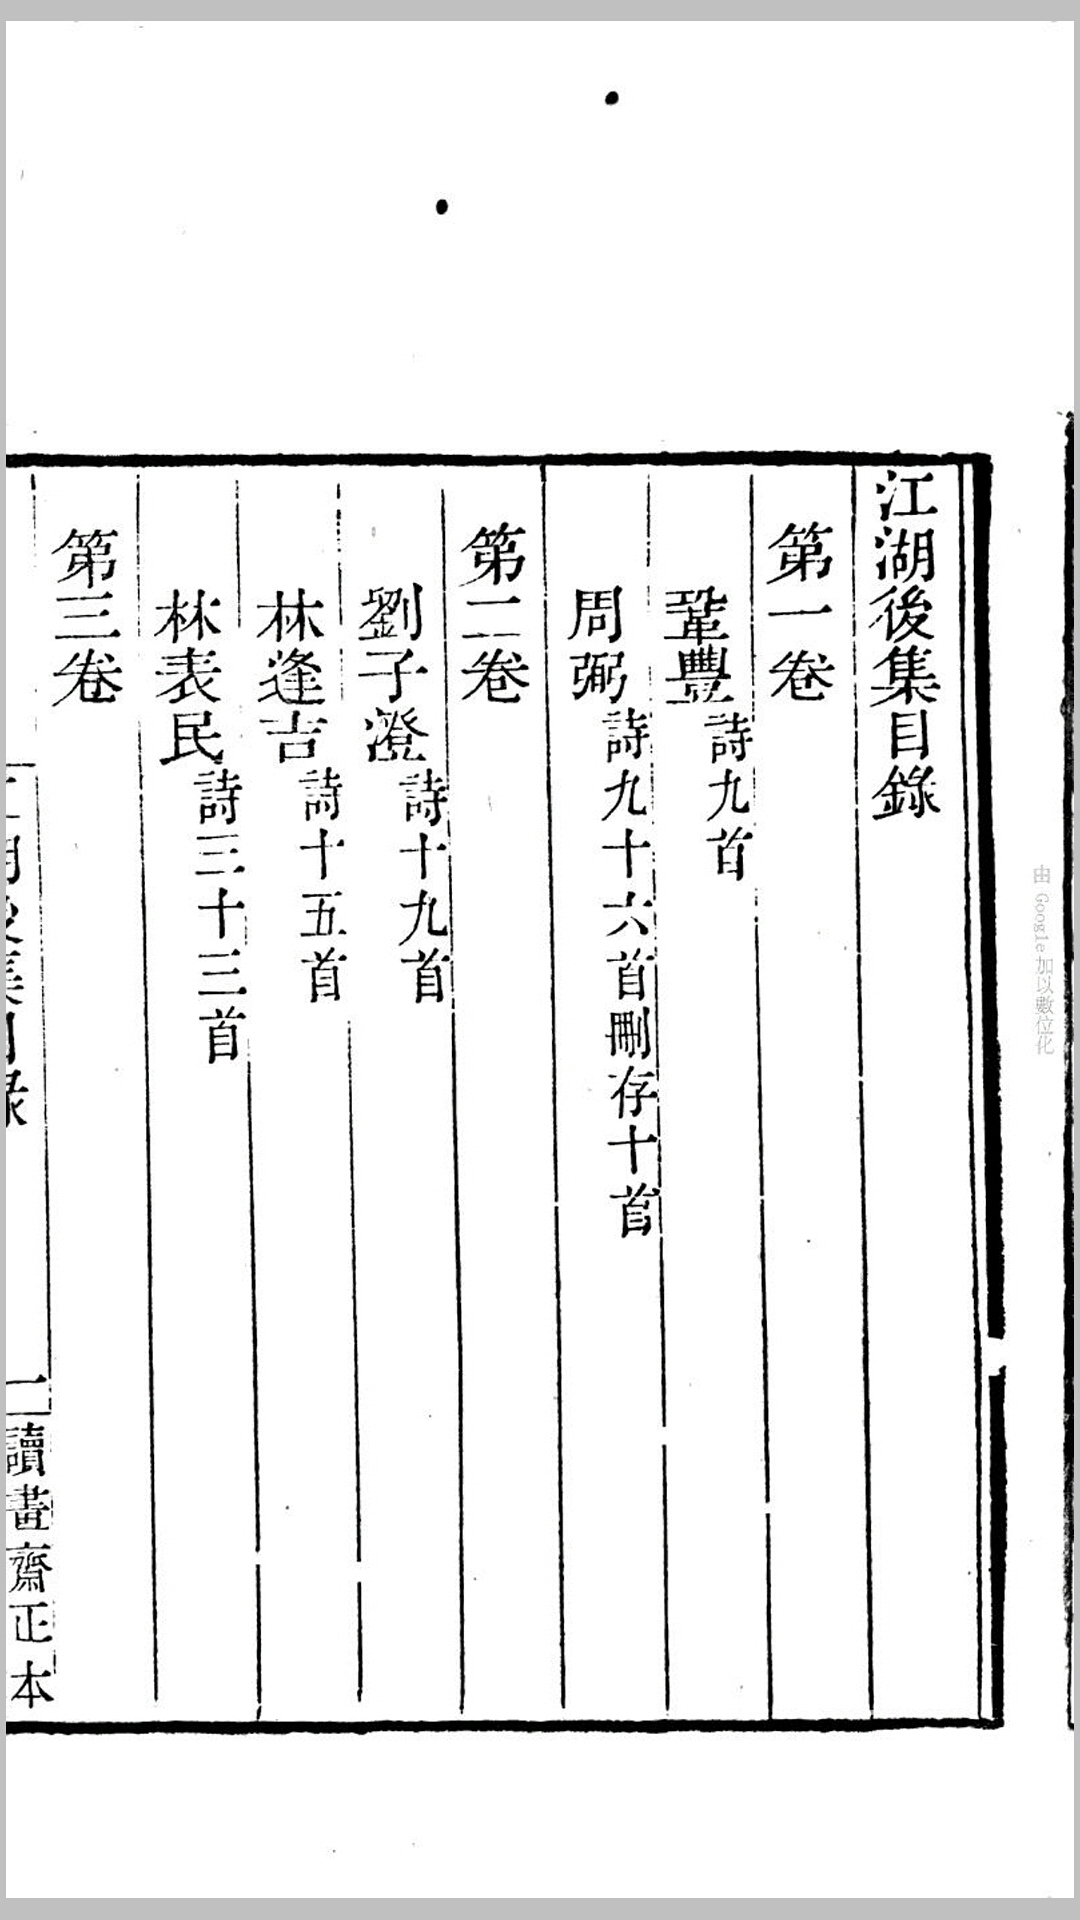 江湖後集目錄
第一卷
鞏豐詩九首
周弼詩九十六首刪存十首
第二卷
劉子澄詩十九首
林逢吉詩十五首
林表民詩三十三首
第三卷
江湖後集目錄 一 讀畫齋正本
由 Google 加以數位化